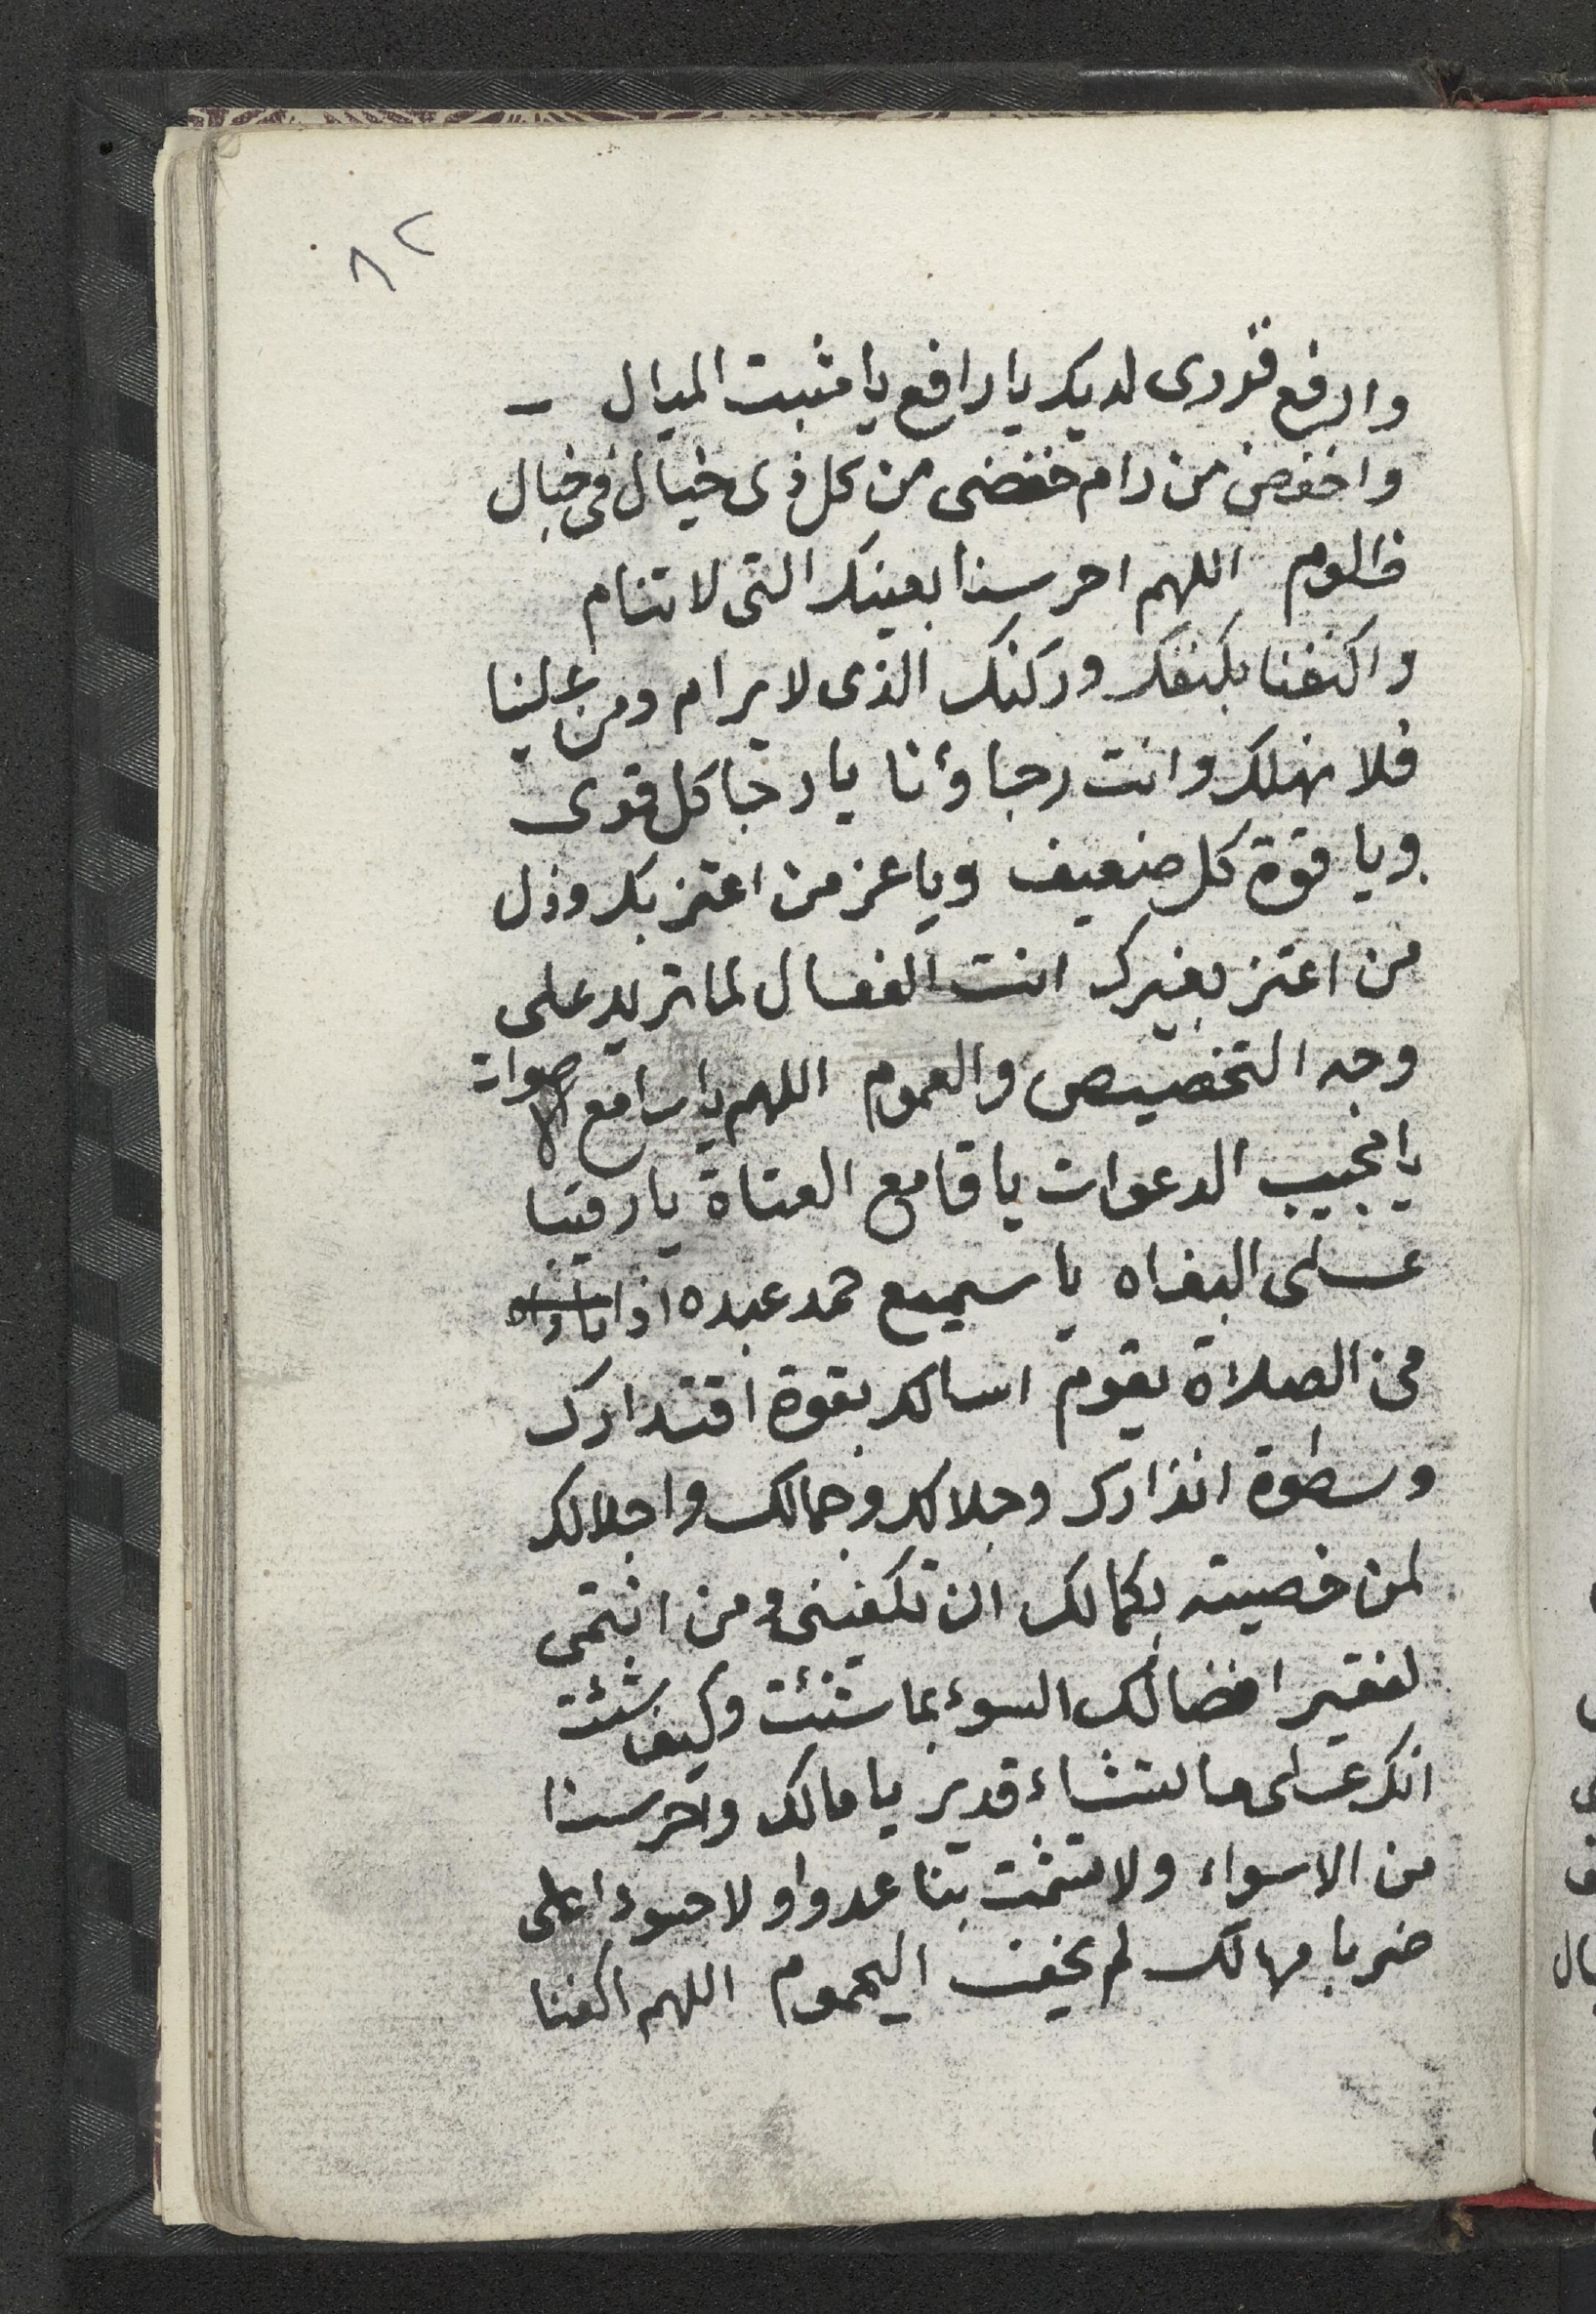 ٨٢
وارفع قدرى لديك يا رافع يا مثبت الميال
واخفض من رام خفضى من كل ذى خيال فى خبال
ظلوم اللهم احرسنا بعينك التى لا تنام
واكنفنا بكنفك وركنك الذى لا يرام ومن علينا
فلا نهلك وانت رجاؤنا يا رجا كل قوى
ويا قوة كل ضعيف ويا عز من اعتز بك وذل
من اعتز بغيرك انت الفعال لما تريد على
وجه التخصيص والعموم اللهم يا سامع الاصوات
يا مجيب الدعوات يا قامع العتاة يا رقيبا
على البغاه يا سميع حمد عبده اذا
من الصلاة يقوم اسالك بقوة اقتدارك
وسطوة انذارك وجلالك وجمالك واجلالك
لمن خصيته بكمالك ان تكفينى ومن انتمى
لفقير افضالك السوء بما شئت وكيف شئت
انك على ما تشاء قدير يا مالك واحرسنا
من الاسواء ولا تشمت بنا عدوا ولا حسودا على
ضربا مهالك لم يخف اليحموم اللهم اكفنا